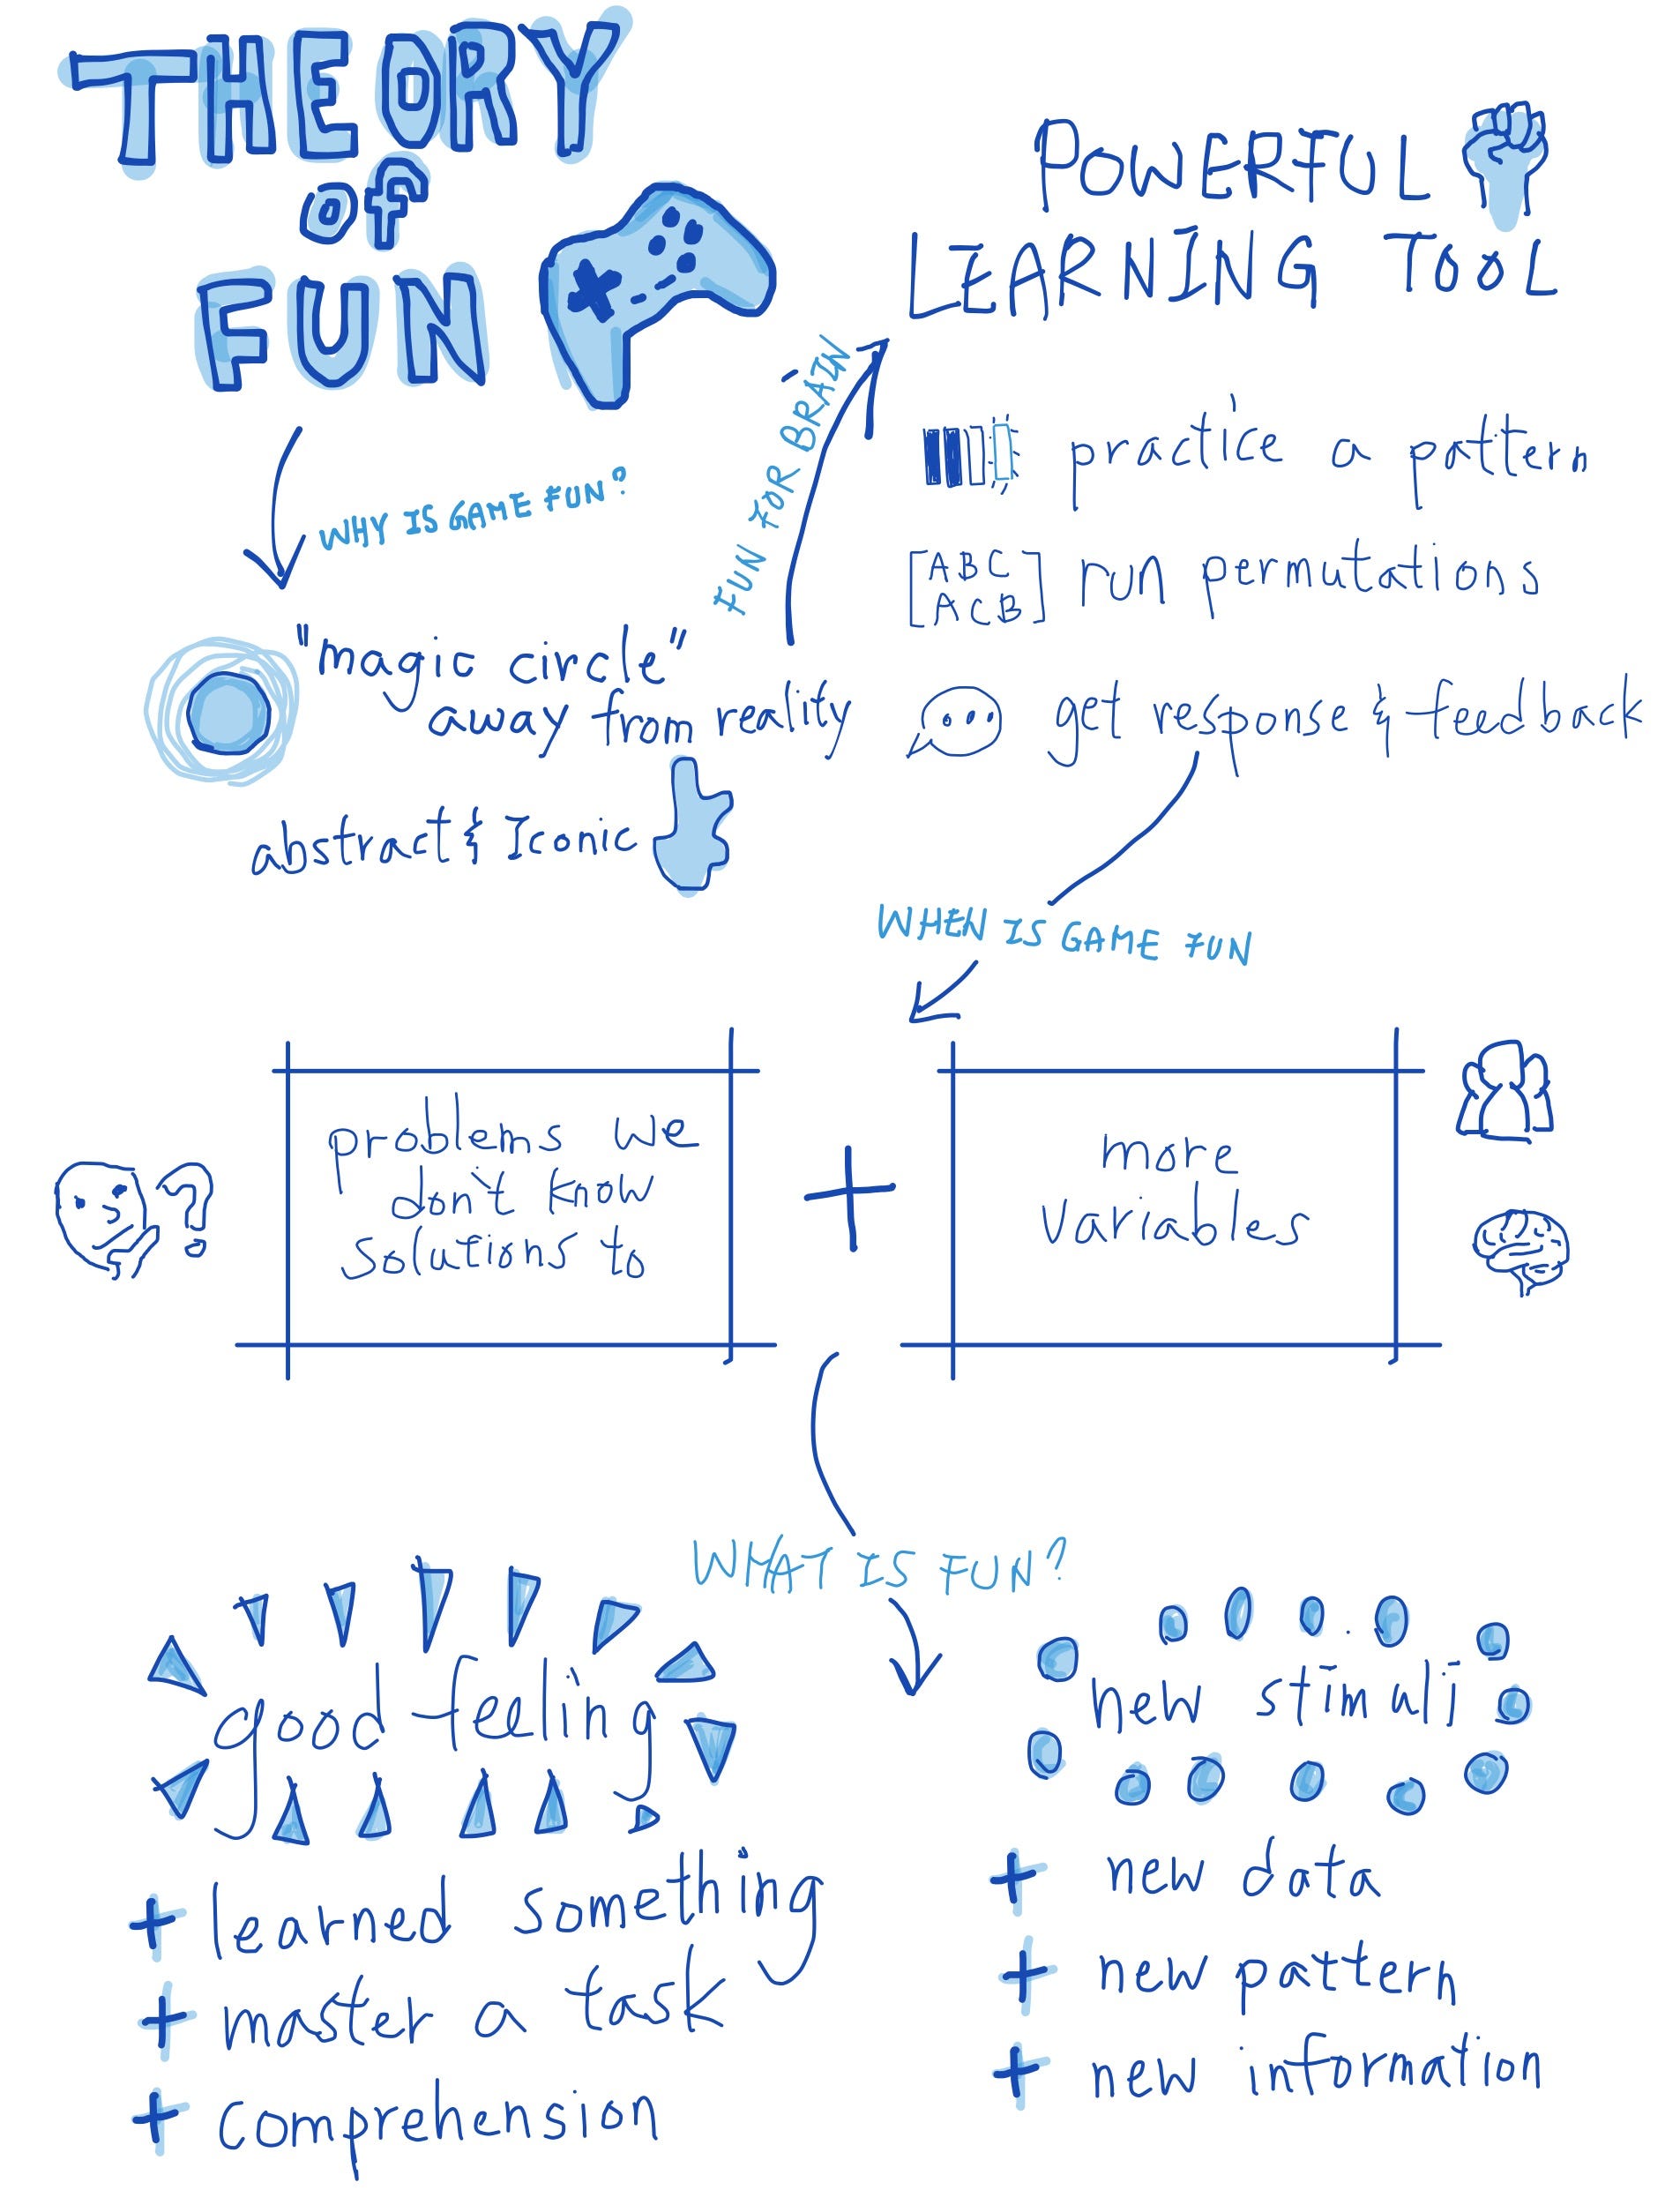 THEORY
OF
FUN
WHY IS GAME FUN?
"magic circle"
away from reality
abstract & Iconic
FUN FOR BRAIN
POWERFUL
LEARNING TOOL
practice a pattern
[ABC
ACB]
run permutations
get response & feedback
WHEN IS GAME FUN
?
problems we
don't know
solutions to
+
more
variables
WHAT IS FUN?
good feeling
+ learned something
+ master a task
+ comprehension
new stimuli
+ new data
+ new pattern
+ new information